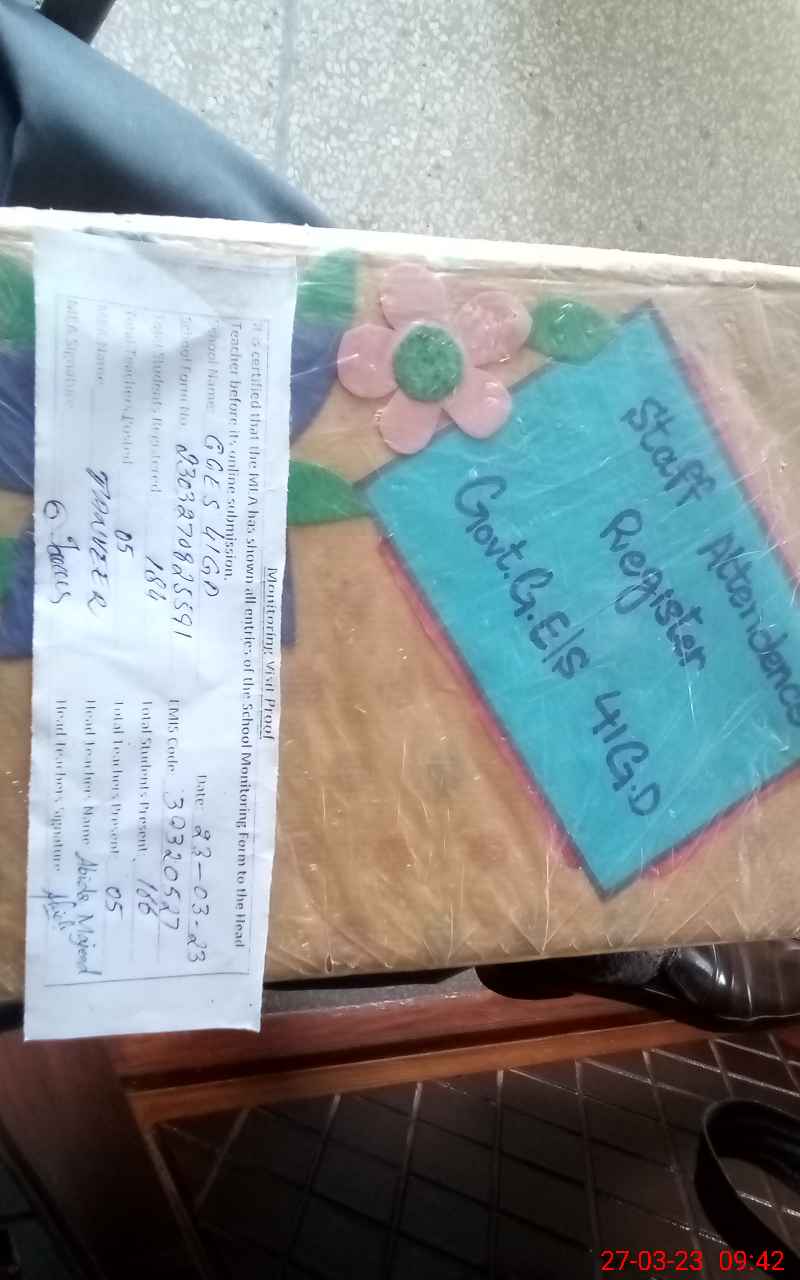 Staff Attendence
Register
Govt.G.E/S 41G.D
Monitoring Visit Proof
It is certified that the MEA has shown all entries of the School Monitoring Form to the Head
Teacher before its online submission.
Date: 23-03-23
School Name: GGES 41GD
School Form No: EMIS Code: 30320527
Total Students Registered 184 Total Students Present 166
Total Teachers Posted 05 Total Teachers Present 05
MEA Name: Head Teacher Name Abida Majeed
MEA Signature Head Teachers signature
27-03-23 09:42